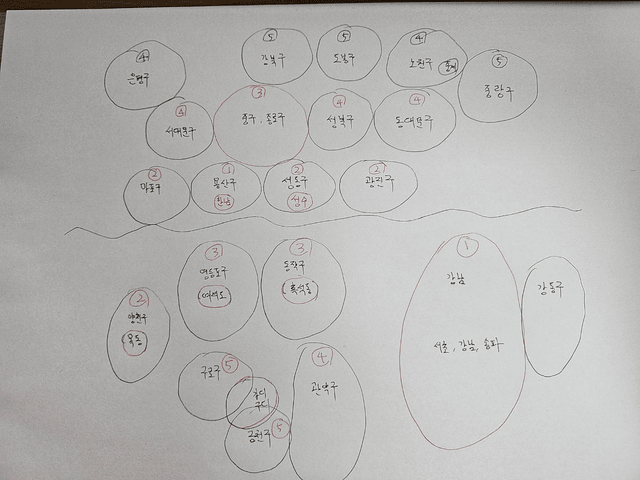 ④
은평구
⑤
강북구
⑤
도봉구
④
노원구
⑤
중랑구
④
서대문구
③
중구, 종로구
④
성북구
④
동대문구
②
마포구
①
용산구
한남
②
성동구
성수
②
광진구
③
영등포구
여의도
③
동작구
흑석동
①
강남
서초, 강남, 송파
강동구
②
양천구
목동
구로구 ⑤
구디
④
관악구
금천구 ⑤